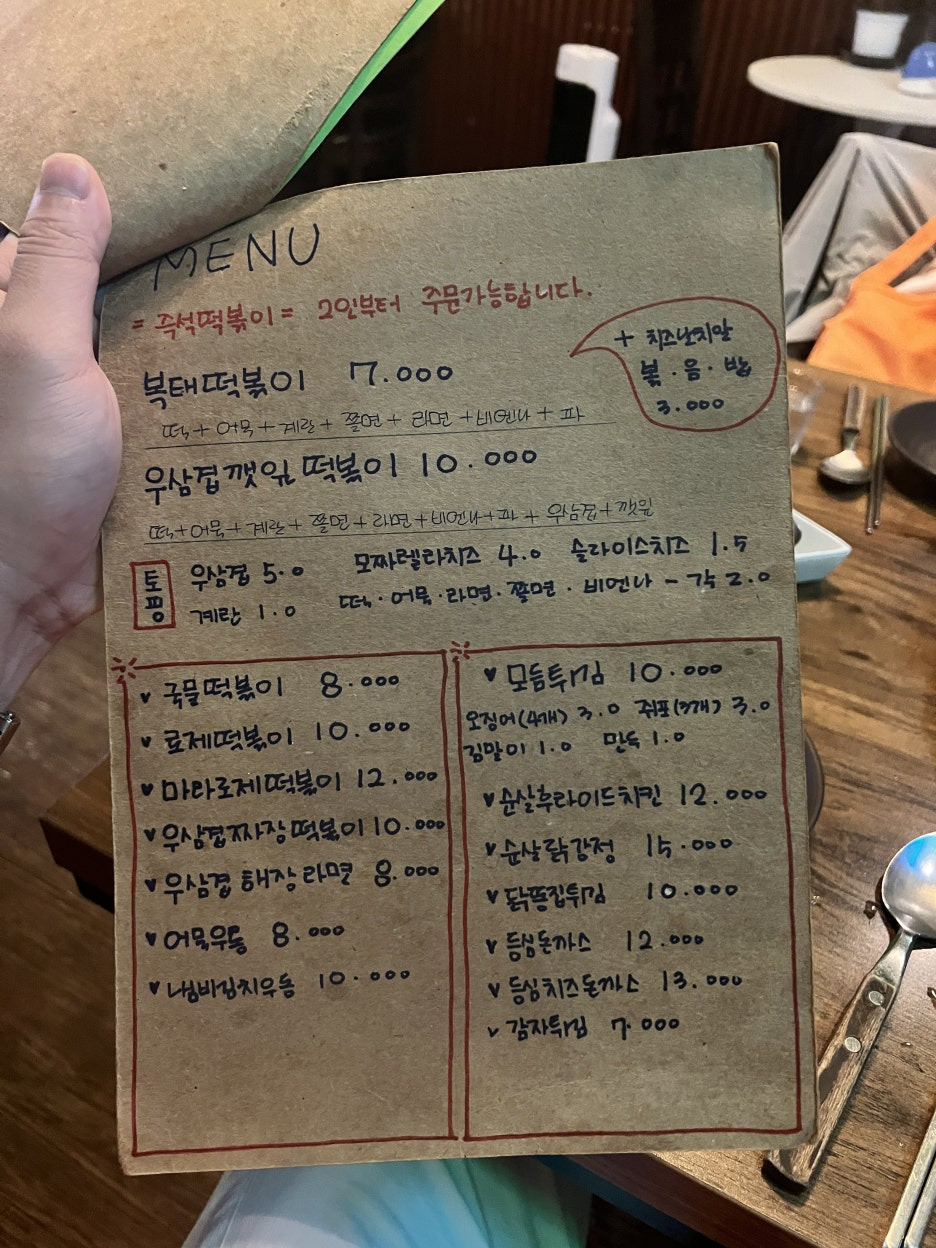 MENU
= 즉석떡볶이 = 2인부터 주문가능합니다.
+ 치즈날치알
볶·음·밥
3.000
복태떡볶이 7.000
떡 + 어묵 + 계란 + 쫄면 + 라면 + 비엔나 + 파
우삼겹깻잎떡볶이 10.000
떡+어묵+계란+쫄면+라면+비엔나+파+우삼겹+깻잎
토핑
우삼겹 5.0 모짜렐라치즈 4.0 슬라이스치즈 1.5
계란 1.0 떡·어묵·라면·쫄면·비엔나 - 각 2.0
♥ 국물떡볶이 8.000
♥ 료제떡볶이 10.000
♥ 마라로제떡볶이 12.000
♥ 우삼겹짜장떡볶이 10.000
♥ 우삼겹 해장라면 8.000
♥ 어물우동 8.000
♥ 냄비김치우동 10.000
♥ 모듬튀김 10.000
오징어(4개) 3.0 쥐포(3개) 3.0
김말이 1.0 만두 1.0
♥ 순살후라이드치킨 12.000
♥ 순살닭강정 15.000
♥ 닭똥집튀김 10.000
♥ 등심돈까스 12.000
♥ 등심치즈돈까스 13.000
♥ 감자튀김 7.000